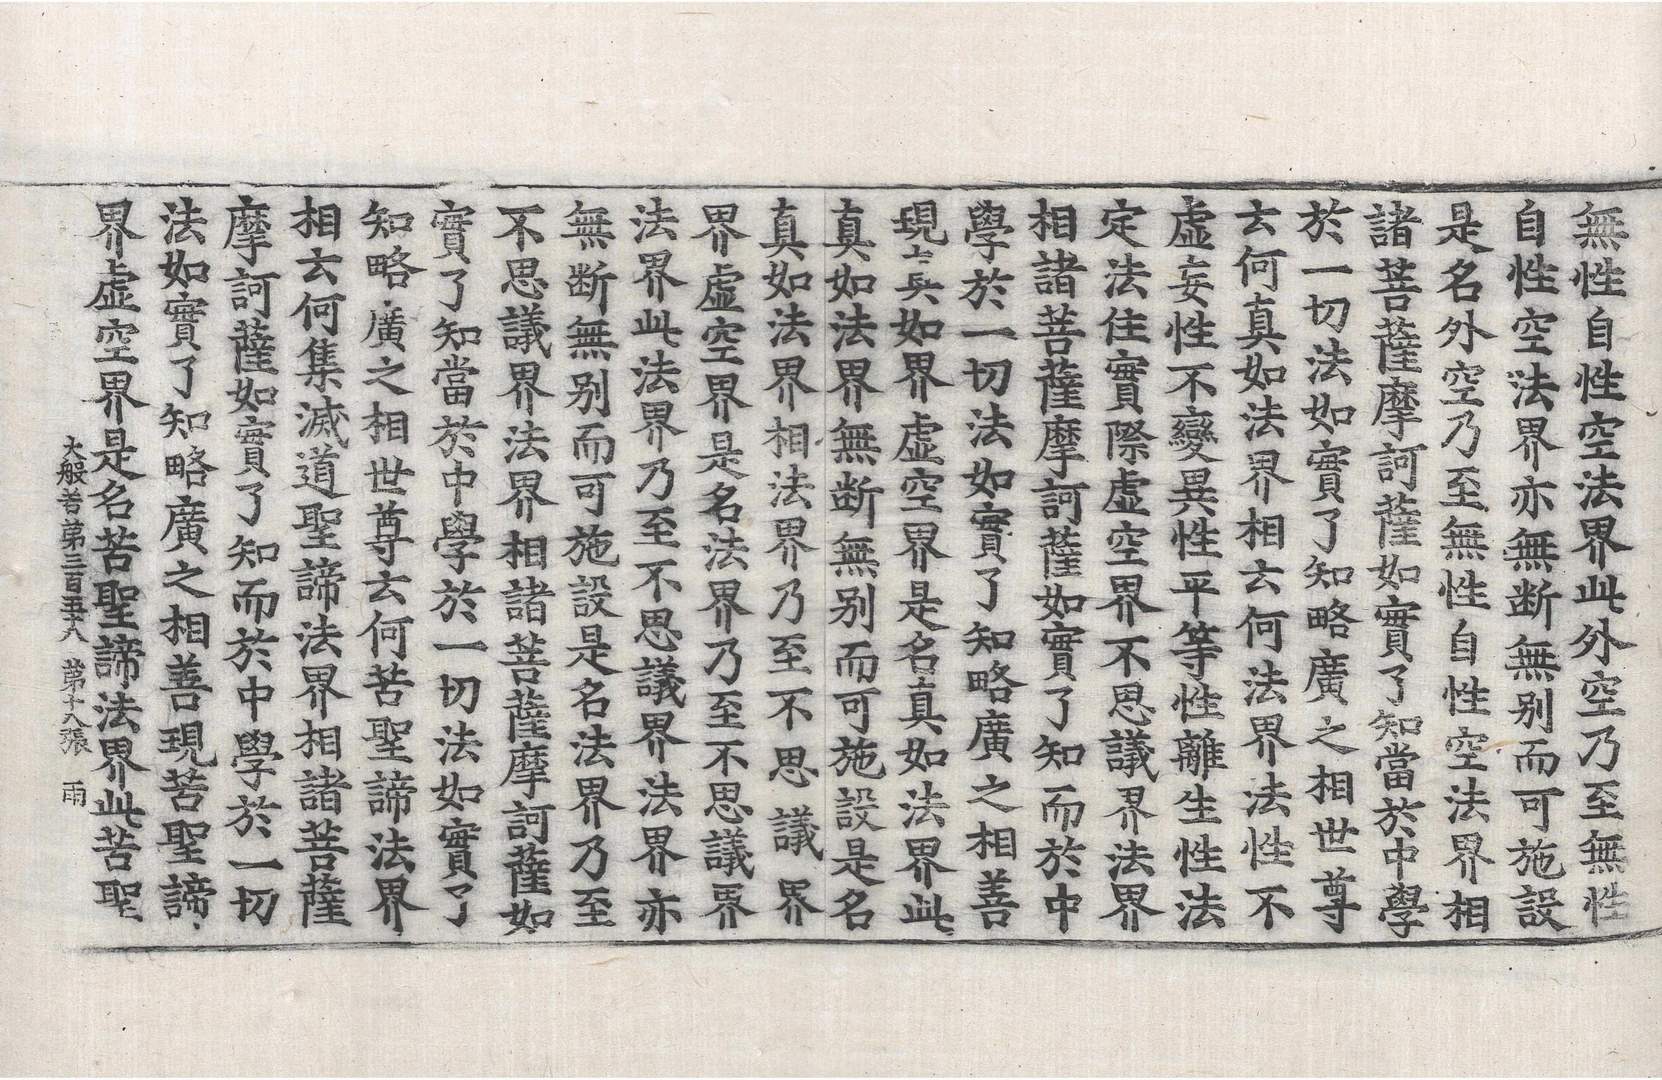 無性自性空法界此外空乃至無性
自性空法界亦無断無别而可施設
是名外空乃至無性自性空法界相
諸菩薩摩訶薩如實了知當於中學
於一切法如實了知略廣之相世尊
云何真如法界相云何法界法性不
虛妄性不變異性平等性離生性法
定法住實際虛空界不思議界法界
相諸菩薩摩訶薩如實了知而於中
學於一切法如實了知略廣之相善
現真如界虛空界是名真如法界此
真如法界無断無别而可施設是名
真如法界相法界乃至不思議界
界虛空界是名法界乃至不思議界
法界此法界乃至不思議界法界亦
無断無别而可施設是名法界乃至
不思議界法界相諸菩薩摩訶薩如
實了知當於中學於一切法如實了
知略廣之相世尊云何苦聖諦法界
相云何集滅道聖諦法界相諸菩薩
摩訶薩如實了知而於中學於一切
法如實了知略廣之相善現苦聖諦
界虛空界是名苦聖諦法界此苦聖
大般若第三百五十八 第十八張 雨